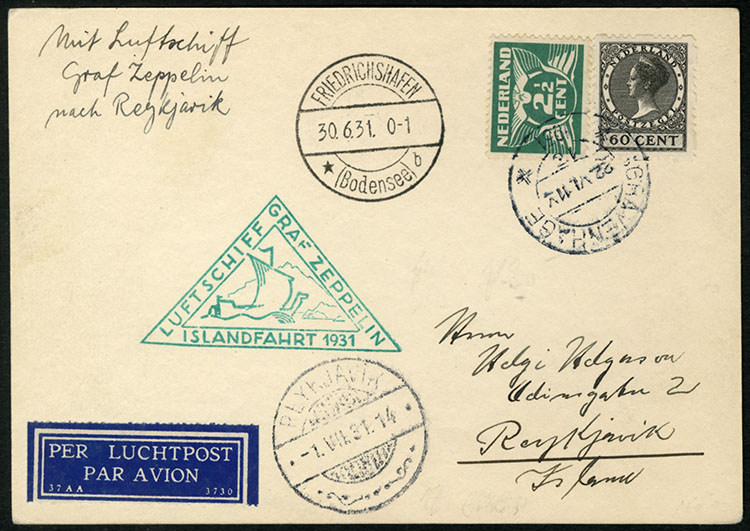 Mit Luftschiff
Graf Zeppelin
nach Reykjavik
FRIEDRICHSHAFEN
30.6.31. 0-1
* (Bodensee) b
NEDERLAND
2½
CENT
NEDERLAND
POSTZEGEL
60 CENT
'S GRAVENHAGE
LUFTSCHIFF GRAF ZEPPELIN
ISLANDFAHRT 1931
REYKJAVIK
-1.VII.31.14
Herrn
Helgi Helgason
Odinsgata 2
Reykjavik
Island
PER LUCHTPOST
PAR AVION
37AA 3730